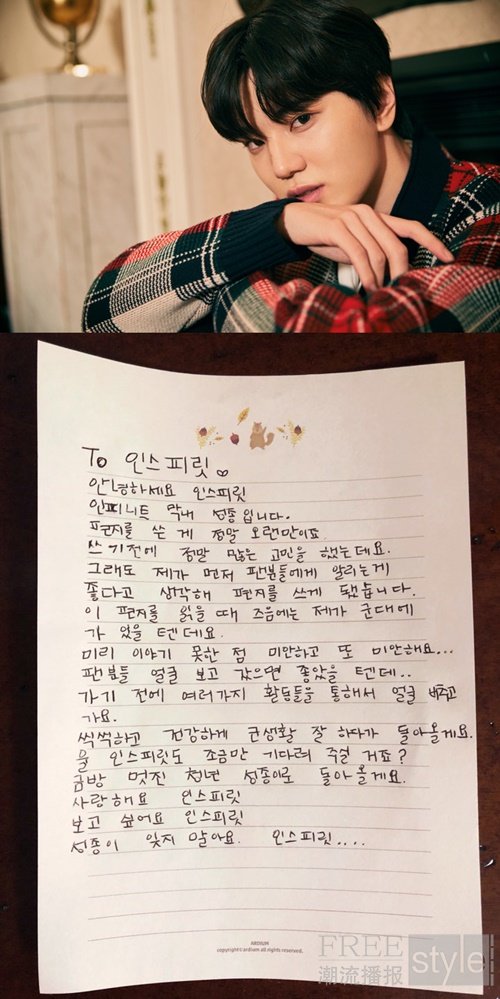 To 인스피릿
안녕하세요 인스피릿
인피니트 막내 성종입니다.
편지를 쓴 게 정말 오랜만이죠
쓰기전에 정말 많은 고민을 했는데요.
그래도 제가 먼저 팬분들에게 알리는게
좋다고 생각해 편지를 쓰게 됐습니다.
이 편지를 읽을 때 즈음에는 제가 군대에
가 있을 텐데요.
미리 이야기 못한 점 미안하고 또 미안해요...
팬분들 얼굴 보고 갔으면 좋았을 텐데..
가기 전에 여러가지 활동들을 통해서 얼굴 비추고
가요.
씩씩하고 건강하게 군생활 잘 하다가 돌아올게요.
울 인스피릿도 조금만 기다려 주실 거죠?
금방 멋진 청년 성종이로 돌아올게요.
사랑해요 인스피릿
보고 싶어요 인스피릿
성종이 잊지 말아요. 인스피릿....
ARDIUM
copyright© ardium all rights reserved.
FREE style
潮流播报